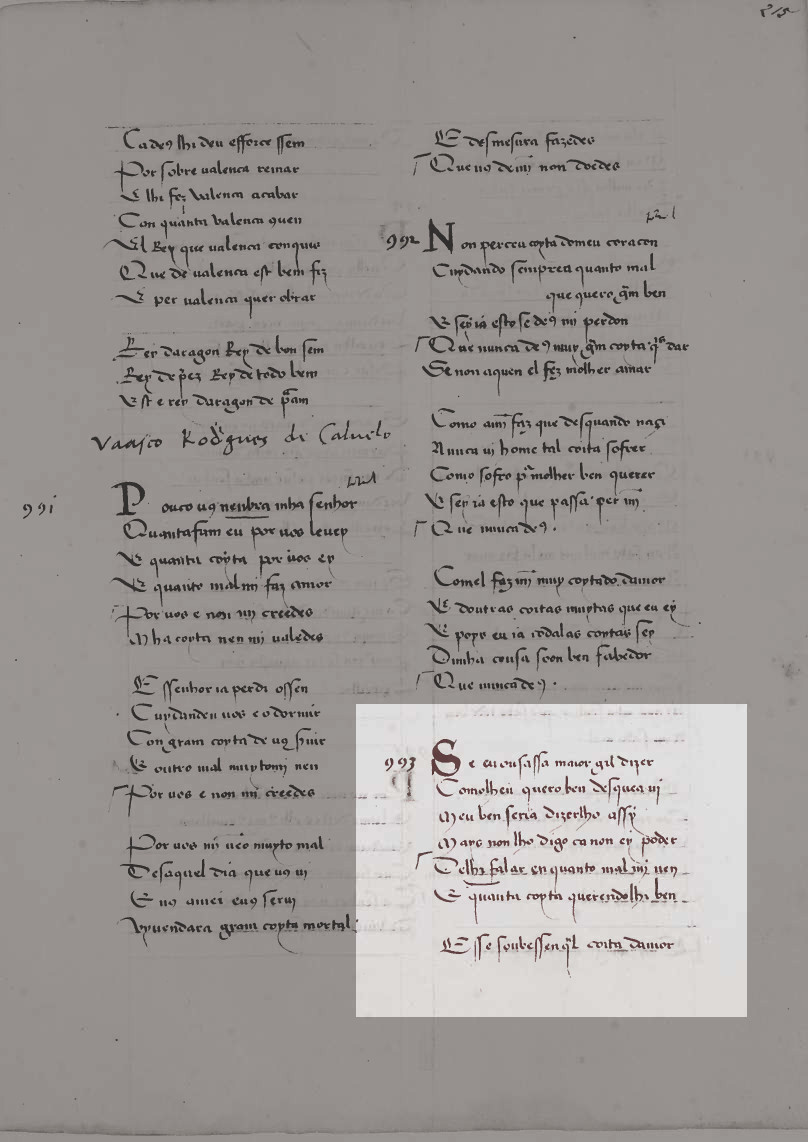 215
Ca deꝯ lhi deu efforce ssem
Por sobre valenca reinar
E lhi fez valenca acabar
Con quanta valenca ꝯuen
El Rey que valenca conquis
Que de valenca est bem fiz
E per valenca quer obrar
Rey daragon Rey de bon sem
Rey de p̃ez Rey de todo bem
Est e rey daragon de p̃am
Vaasco Rodrigues de Caluelo
991
Pouco uꝯ nenbra mha senhor
Quantafam eu por uos leuey
E quanta coyta por uos ey
E quanto mal mi faz amor
Por uos e non mi creedes
Mha coyta nen mi valedes
E ssenhor ia perdi o ssen
Cuydandeu uos e o dormir
Con gram coyta de uꝯ seruir
E outro mal muyto mi uen
Por uos e non mi creedes
Por uos mi uẽo muyto mal
Desaquel dia que uꝯ ui
E uꝯ amei e uꝯ serui
Vyuendara gram coyta mortal
E desmesura fazedes
Que uꝯ de mĩ non doedes
992
Non perceu coyta do meu coracon
Cuydando sempreu quanto mal
que quero gm̃ ben
E seria esto se deꝯ mi perdon
Que nunca deꝯ muy gm̃ coyta q̃s dar
Se non aquen el fez molher amar
Como amĩ faz que desquando naçi
Nunca ui home tal coita sofrer
Como sofro p̃ molher ben querer
E sey ia esto que passa per mĩ
Que nunca deꝯ.
Comel faz mĩ muy coytado damor
E doutras coitas muytas que eu ey
E poys eu ia todalas coytas sey
Dunha cousa soon ben sabedor
Que nunca deꝯ.
993
Se eu ousassa maior gil dizer
Comolheu quero ben desquea ui
Meu ben seria dizerlho assy
Mays non lho digo ca non ey poder
Delhi falar en quanto mal mj̃ uen
E quanta coyta querendolhi ben
E sse soubessen q̃l coita damor